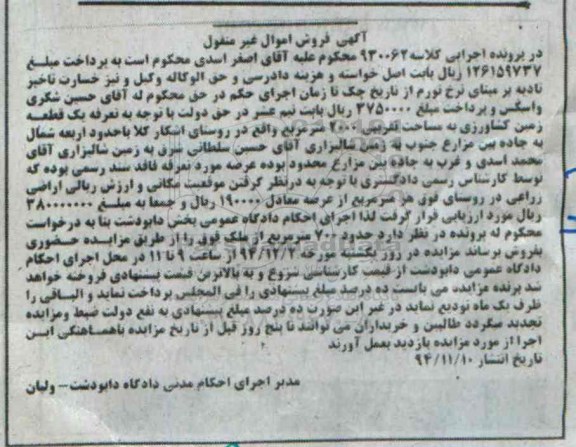 آگهی فروش اموال غیر منقول
در پرونده اجرایی کلاسه ۹۳۰۰۶۲ محکوم علیه آقای اصغر اسدی محکوم است به پرداخت مبلغ
۱۲۶۱۵۹۷۳۷ ریال بابت اصل خواسته و هزینه دادرسی و حق الوکاله وکیل و نیز خسارت تاخیر
تادیه بر مبنای نرخ تورم از تاریخ چک تا زمان اجرای حکم در حق محکوم له آقای حسین شکری
واسگس و پرداخت مبلغ ۳۷۵۰۰۰۰ ریال بابت نیم عشر در حق دولت با توجه به تعرفه یک قطعه
زمین کشاورزی به مساحت تقریبی مترمربع واقع در روستای اشکار کلا باحدود اربعه شمال
به جاده بین مزارع جنوب به زمین شالیزاری آقای حسین سلطانی شرق به زمین شالیزاری آقای
محمد اسدی و غرب به جاده بین مزارع محدود بوده عرصه مورد تعرفه فاقد سند رسمی بوده که
توسط کارشناس رسمی دادگستری با توجه به درنظر گرفتن موقعیت مکانی و ارزش ریالی اراضی
زراعی در روستای فوق هر مترمربع از عرصه معادل ۱۹۰۰۰۰ ریال و جمعا به مبلغ ۳۸۰۰۰۰۰۰۰
ریال مورد ارزیابی قرار گرفت لذا اجرای احکام دادگاه عمومی بخش دابودشت بنا به درخواست
محکوم له پرونده در نظر دارد حدود ۷۰۰ مترمربع از ملک فوق را از طریق مزایده حضوری
بفروش برساند مزایده در روز یکشنبه مورخه ۹۴/۱۲/۲ از ساعت ۹ تا ۱۱ در محل اجرای احکام
دادگاه عمومی دابودشت از قیمت کارشناسی شروع و به بالاترین قیمت پیشنهادی فروخته خواهد
شد برنده مزایده می بایست ده درصد مبلغ پیشنهادی را فی المجلس پرداخت نماید و الباقی را
ظرف یک ماه تودیع نماید در غیر این صورت ده درصد مبلغ پیشنهادی به نفع دولت ضبط ومزایده
تجدید میگردد طالبین و خریداران می توانند تا پنج روز قبل از تاریخ مزایده باهماهنگی این
اجرا از مورد مزایده بازدید بعمل آورند
تاریخ انتشار ۹۴/۱۱/۱۰
مدیر اجرای احکام مدنی دادگاه دابودشت - ولیان